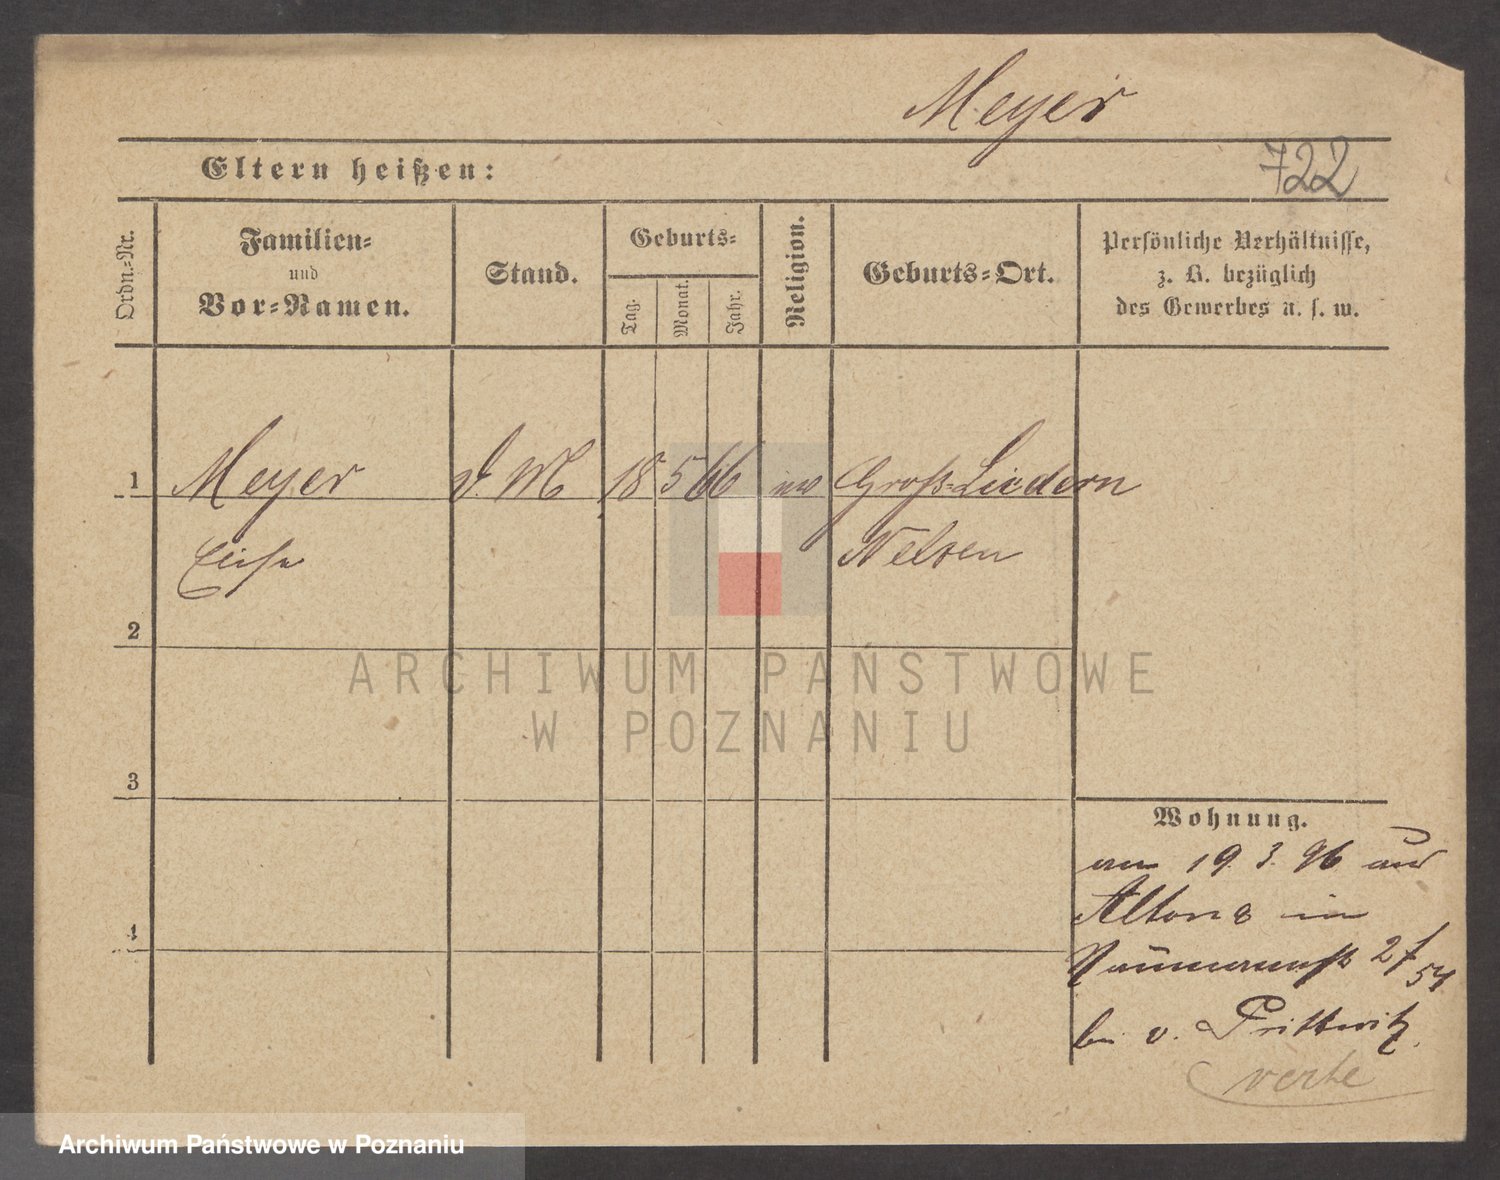 Meyer
Eltern heißen:
722
Ordn.-Nr.
Familien-
und
Vor-Namen.
Stand.
Geburts-
Tag.
Monat.
Jahr.
Religion.
Geburts-Ort.
Persönliche Verhältnisse,
z. B. bezüglich
des Gewerbes u. s. w.
1
Meyer
d. M
18
5
66
Groß-Liedern
Elise
2
3
4
Wohnung.
am 19. 3. 96 aus
Altona in
bei v. Prittwitz
verte
ARCHIWUM PAŃSTWOWE
W POZNANIU
Archiwum Państwowe w Poznaniu